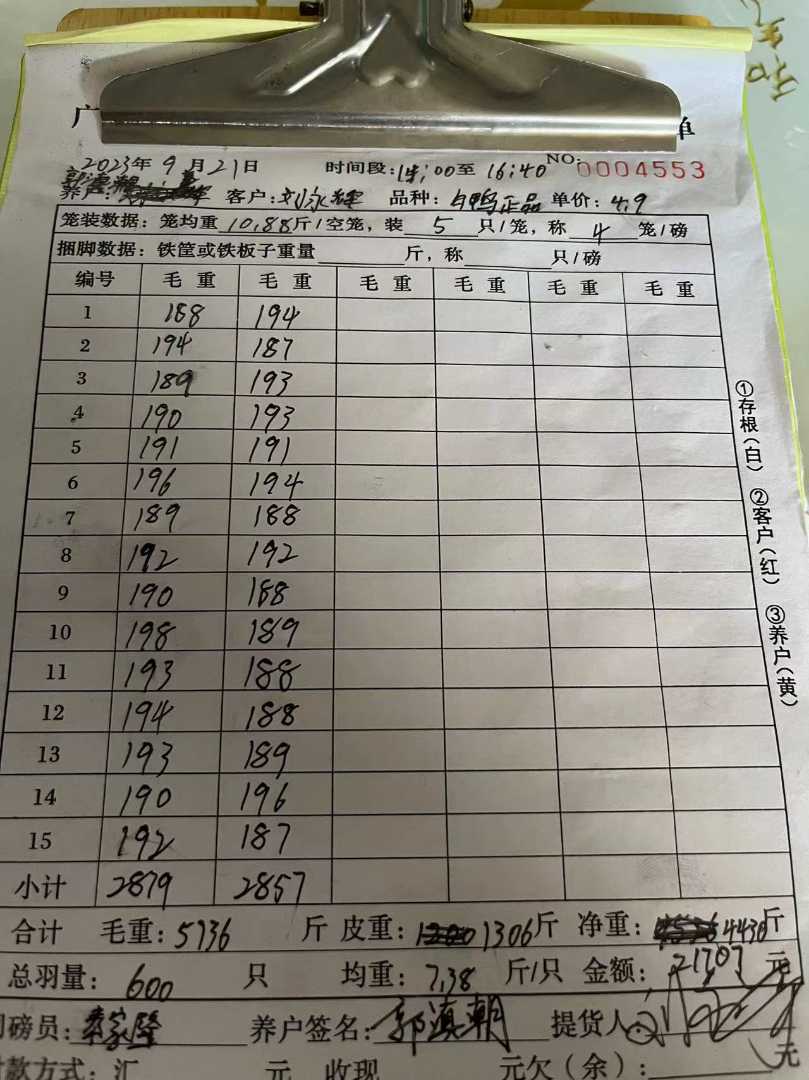 广 单
2023年9月21日 时间段:14:00至16:40 NO:0004553
郭滇朝
养户: 客户:刘永辉 品种:白鸭正品 单价:4.9
笼装数据:笼均重10.88斤/空笼,装5只/笼,称4笼/磅
捆脚数据:铁筐或铁板子重量 斤,称 只/磅
编号 毛重 毛重 毛重 毛重 毛重 毛重
1 188 194
2 194 187
3 189 193
4 190 193
5 191 191
6 196 194
7 189 188
8 192 192
9 190 188
10 198 189
11 193 188
12 194 188
13 193 189
14 190 196
15 192 187
小计 2879 2857
合计 毛重:5736 斤 皮重:1306斤 净重:4430斤
总羽量:600 只 均重:7.38 斤/只 金额:21707元
磅员: 养户签名:郭滇朝 提货人:
款方式:汇 元 收现 元欠(余): 元
①存根(白) ②客户(红) ③养户(黄)